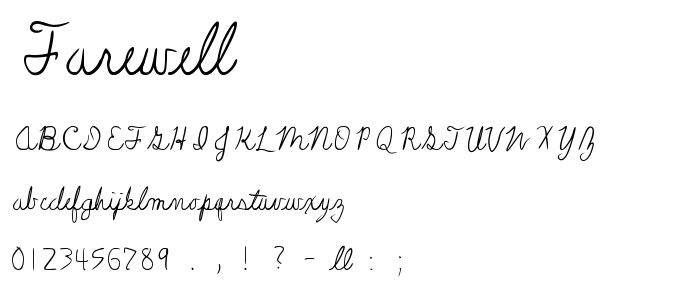 Farewell
ABCDEFGHIJKLMNOPQRSTUVWXYZ
abcdefghijklmnopqrstuvwxyz
0123456789 . , ! ? - ll : ;